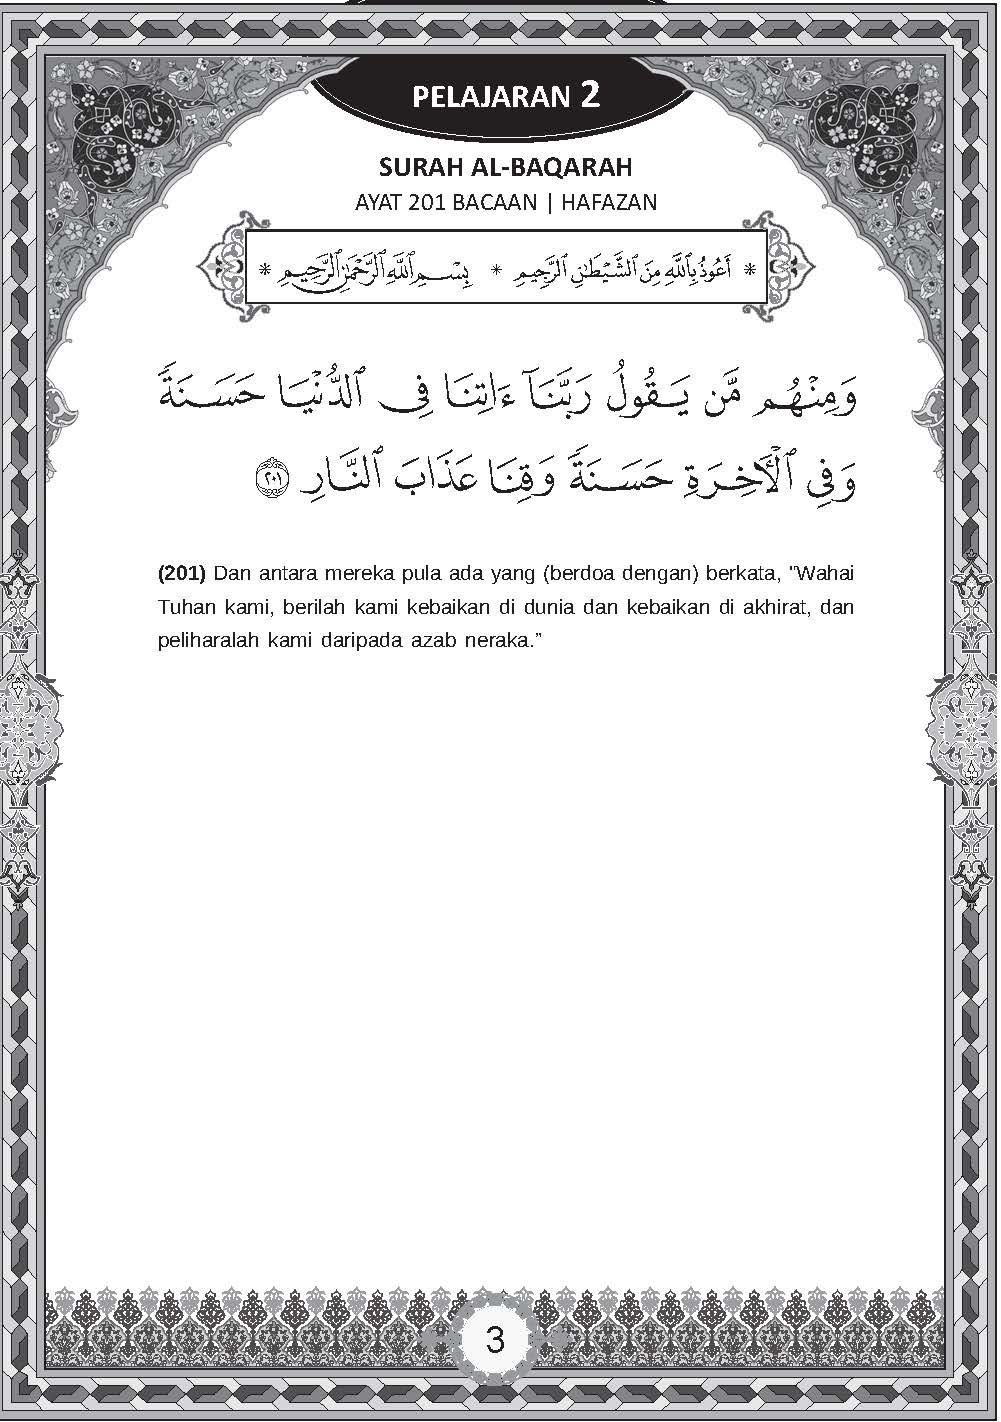 PELAJARAN 2
SURAH AL-BAQARAH
AYAT 201 BACAAN | HAFAZAN
* أَعُوذُ بِٱللَّهِ مِنَ ٱلشَّيْطَـٰنِ ٱلرَّجِيمِ * بِسْمِ ٱللَّهِ ٱلرَّحْمَـٰنِ ٱلرَّحِيمِ *
وَمِنْهُم مَّن يَقُولُ رَبَّنَآ ءَاتِنَا فِى ٱلدُّنْيَا حَسَنَةً
وَفِى ٱلْأَخِرَةِ حَسَنَةً وَقِنَا عَذَابَ ٱلنَّارِ ٢٠١
(201) Dan antara mereka pula ada yang (berdoa dengan) berkata, "Wahai
Tuhan kami, berilah kami kebaikan di dunia dan kebaikan di akhirat, dan
peliharalah kami daripada azab neraka.”
3